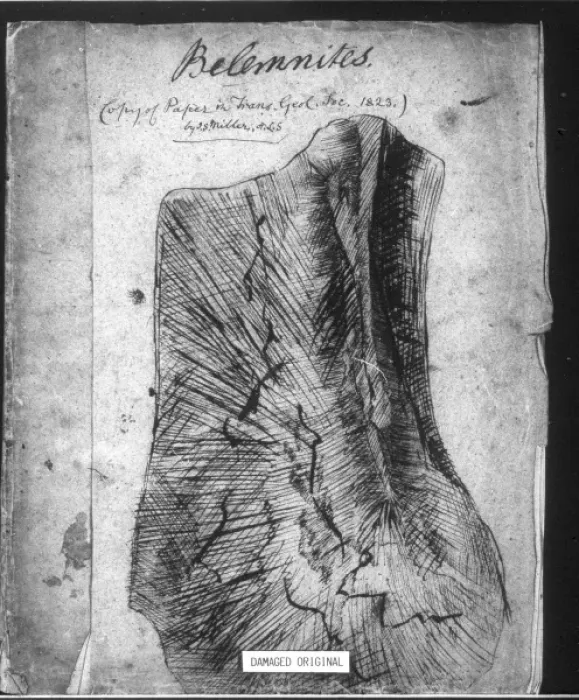 Belemnites.
(Copy of Paper in Trans. Geol. Soc. 1823.)
by J.S. Miller, A.L.S
DAMAGED ORIGINAL